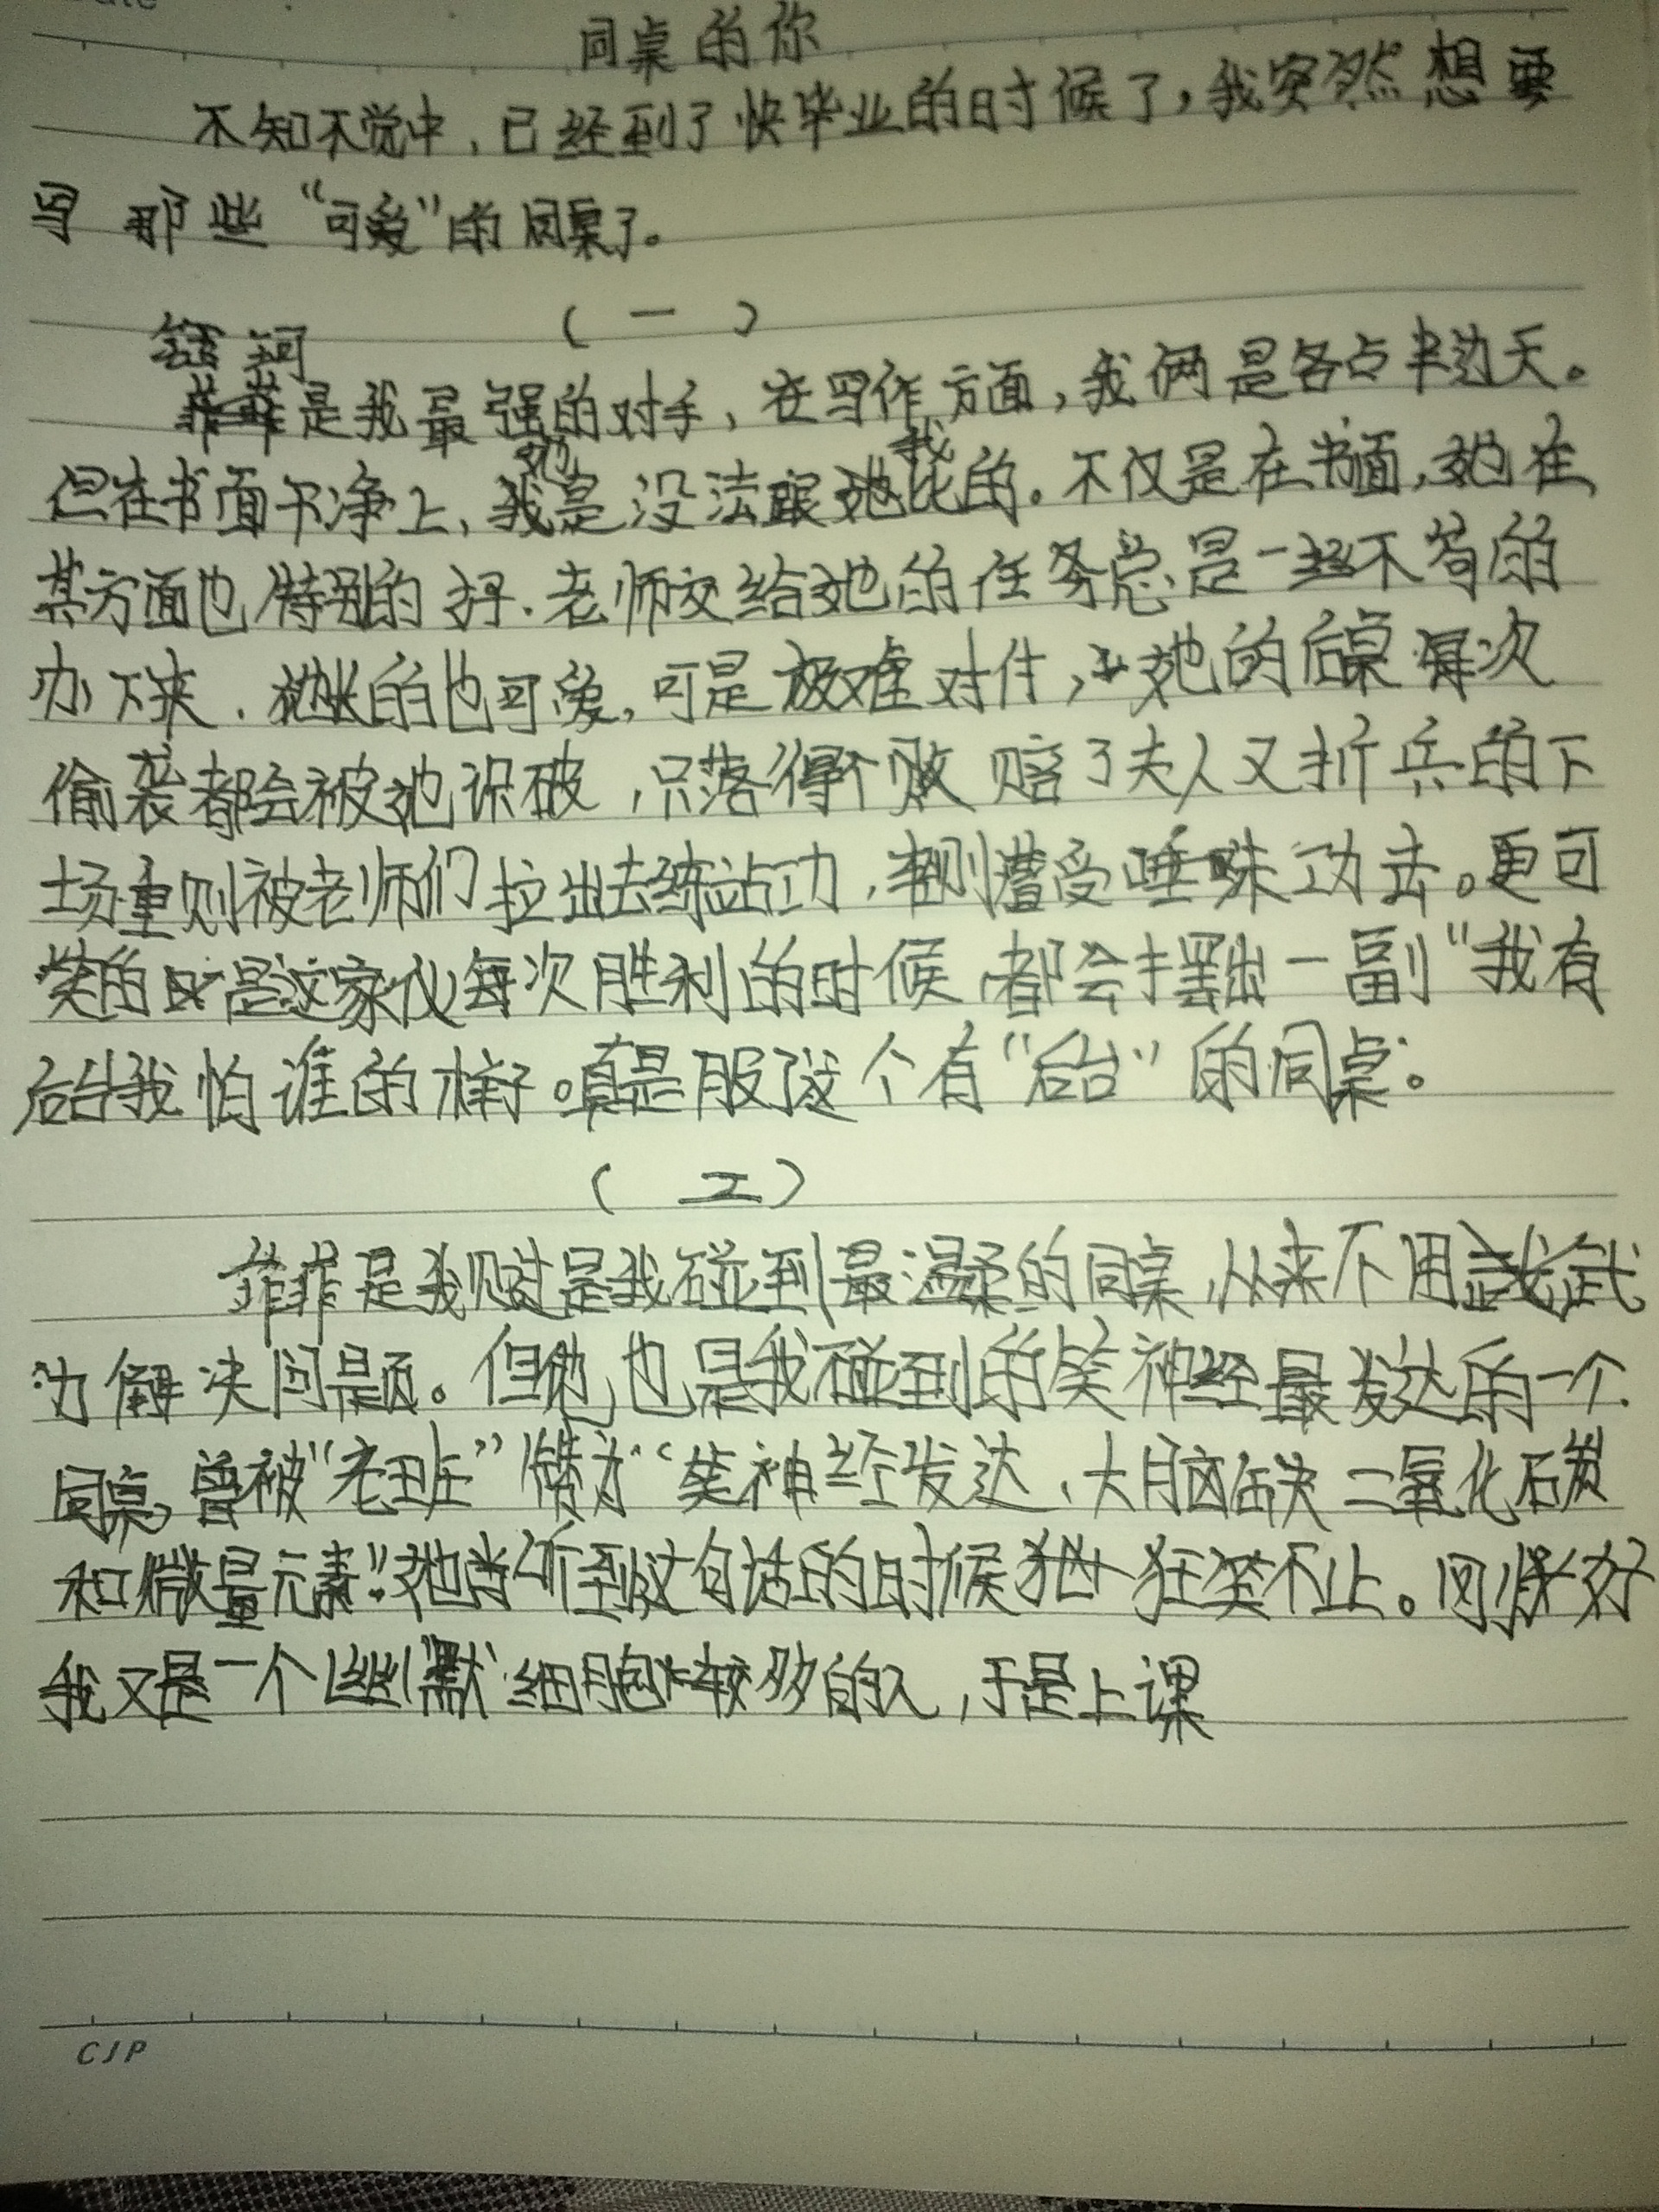 同桌的你
不知不觉中，已经到了快毕业的时候了，我突然想要
写那些“可爱”的同桌了。
（一）
珂
是我最强的对手，在写作方面，我俩是各占半边天。
她 我
但在书面干净上，我是没法跟她比的。不仅是在书面，她在
某方面也特别的好．老师交给她的任务总是一丝不苟的
办下来．她长的也可爱，可是极难对付，她的后桌每次
偷袭都会被她识破，只落得个败 赔了夫人又折兵的下
场重则被老师们拉出去练站功，轻则遭受唾沫功击。更可
笑的是这家伙每次胜利的时候都会摆出一副“我有
后台我怕谁的样子。真是服了这个有“后台”的同桌。
（二）
菲菲是我见过是我碰到最温柔的同桌，从来不用武
力解决问题。但她也是我碰到的笑神经最发达的一个
同桌，曾被“老班”偁为“笑神经发达，大脑缺二氧化碳
和微量元素”她当听到这句话的时候 狂笑不止。刚好
我又是一个幽默细胞比较多的人，于是上课
CJP